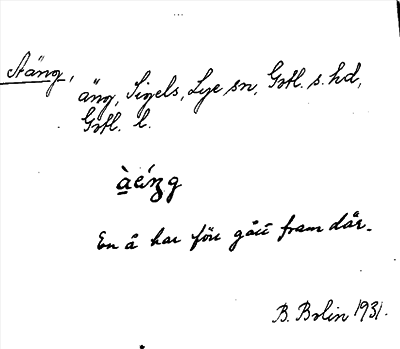 Ååäng,
äng, Sigels, Lye sn, Gotl. s. hd,
Gotl. l.
En å har förr gått fram där.
B. Bolin 1931.